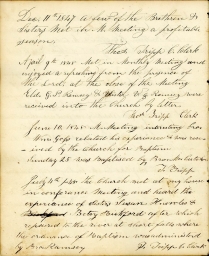 Dec 11th 1847 a few of the Brethren &
Sisters Met in M. Meeting a profitable
season.
Thos Tripp C. Clerk
April 9th 1848 Met in Monthly Meeting and
enjoyed a refreshing from the presence of
the Lord, at the close of the meeting
Eld. G. P. Ramsey & Sister Ramsey were
received into the Church by letter.
Thos Tripp Clerk
June 10. 1848 M. Meeting interesting two
related his experience & was rec-
eived by the Church for Baptism
Sunday 25 was Baptised by
Th Tripp
July 4th 1848 the Church met at
in conference Meeting and heard the
experience of sister Susan &
Betsy after which
repaired to the river at where
the ordinance of Baptism was administered
by Bro Ramsey Th Tripp C. Clerk